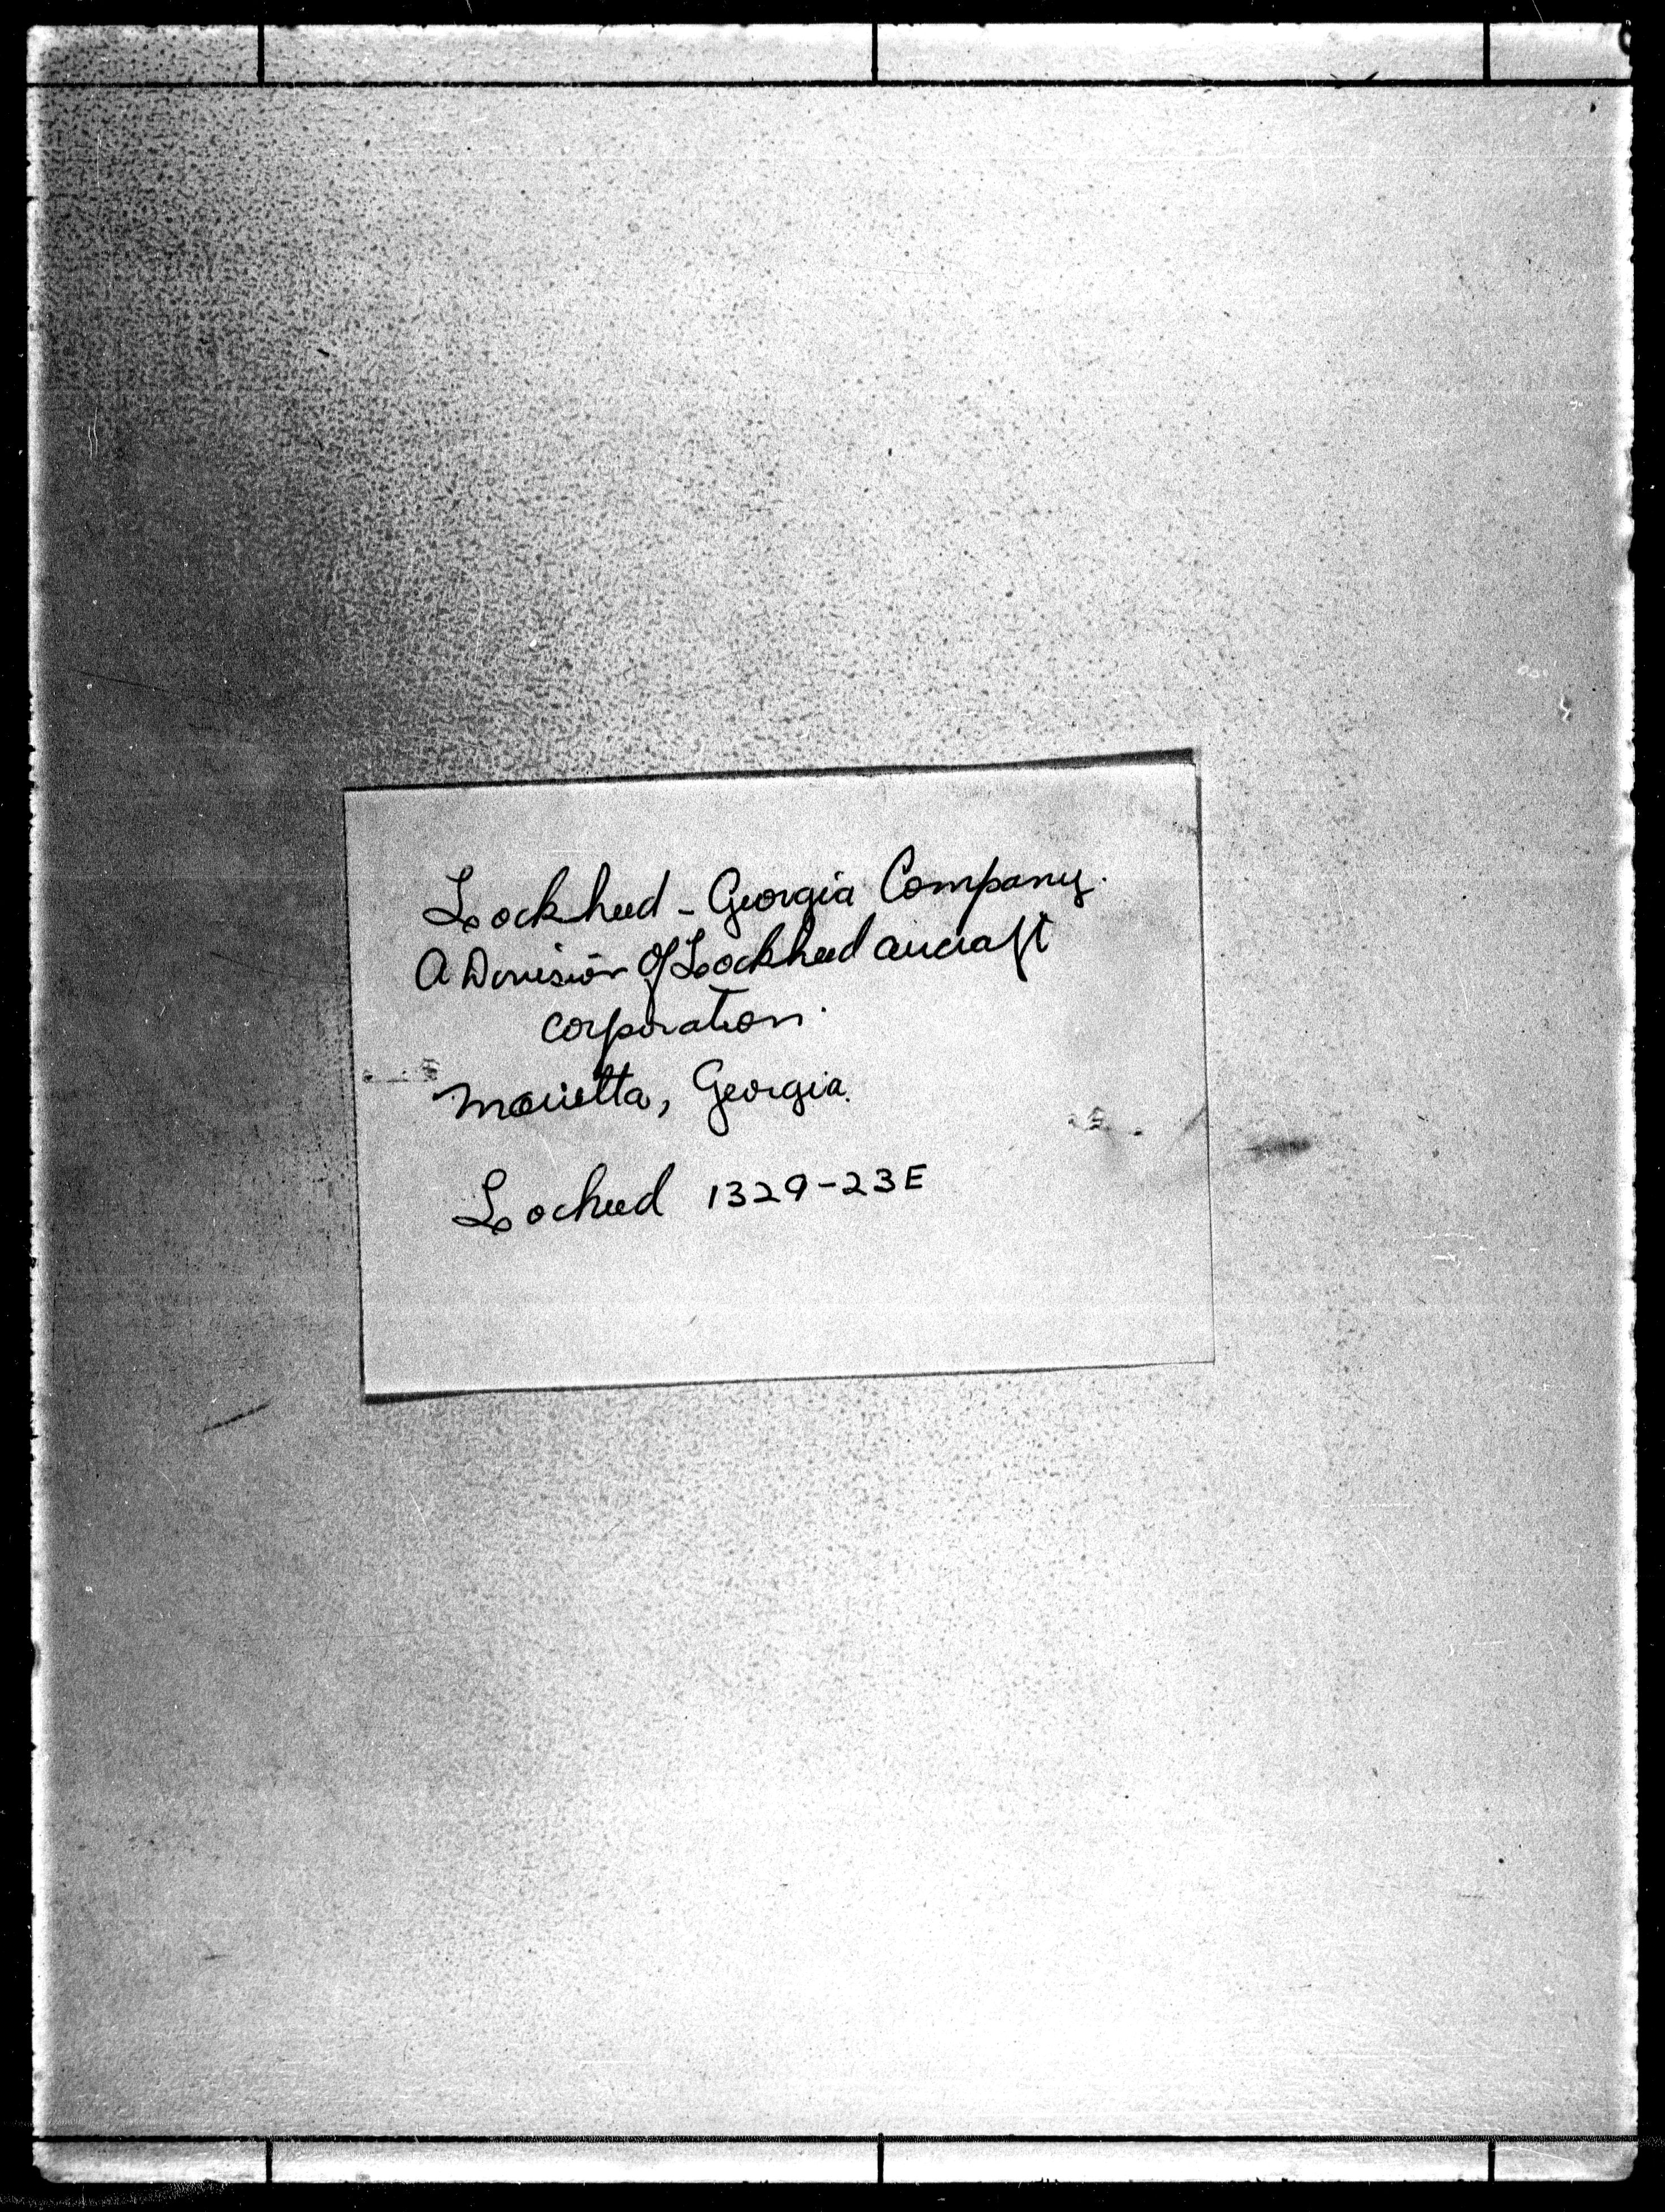 Lockheed - Georgia Company.
A Division of Lockheed aircraft
corporation.
Marietta, Georgia.
Locheed 1329-23E